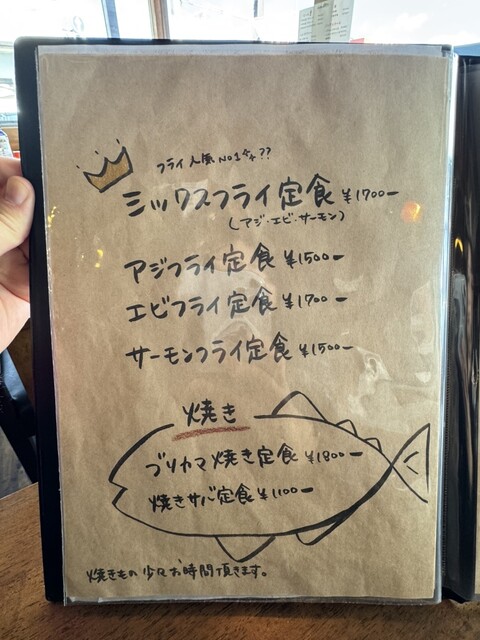 フライ人気No1かな??
ミックスフライ定食 ¥1700-
(アジ・エビ・サーモン)
アジフライ定食 ¥1500-
エビフライ定食 ¥1700-
サーモンフライ定食 ¥1500-
焼き
ブリカマ焼き定食 ¥1800-
焼きサバ定食 ¥1100-
焼きもの少々お時間頂きます。